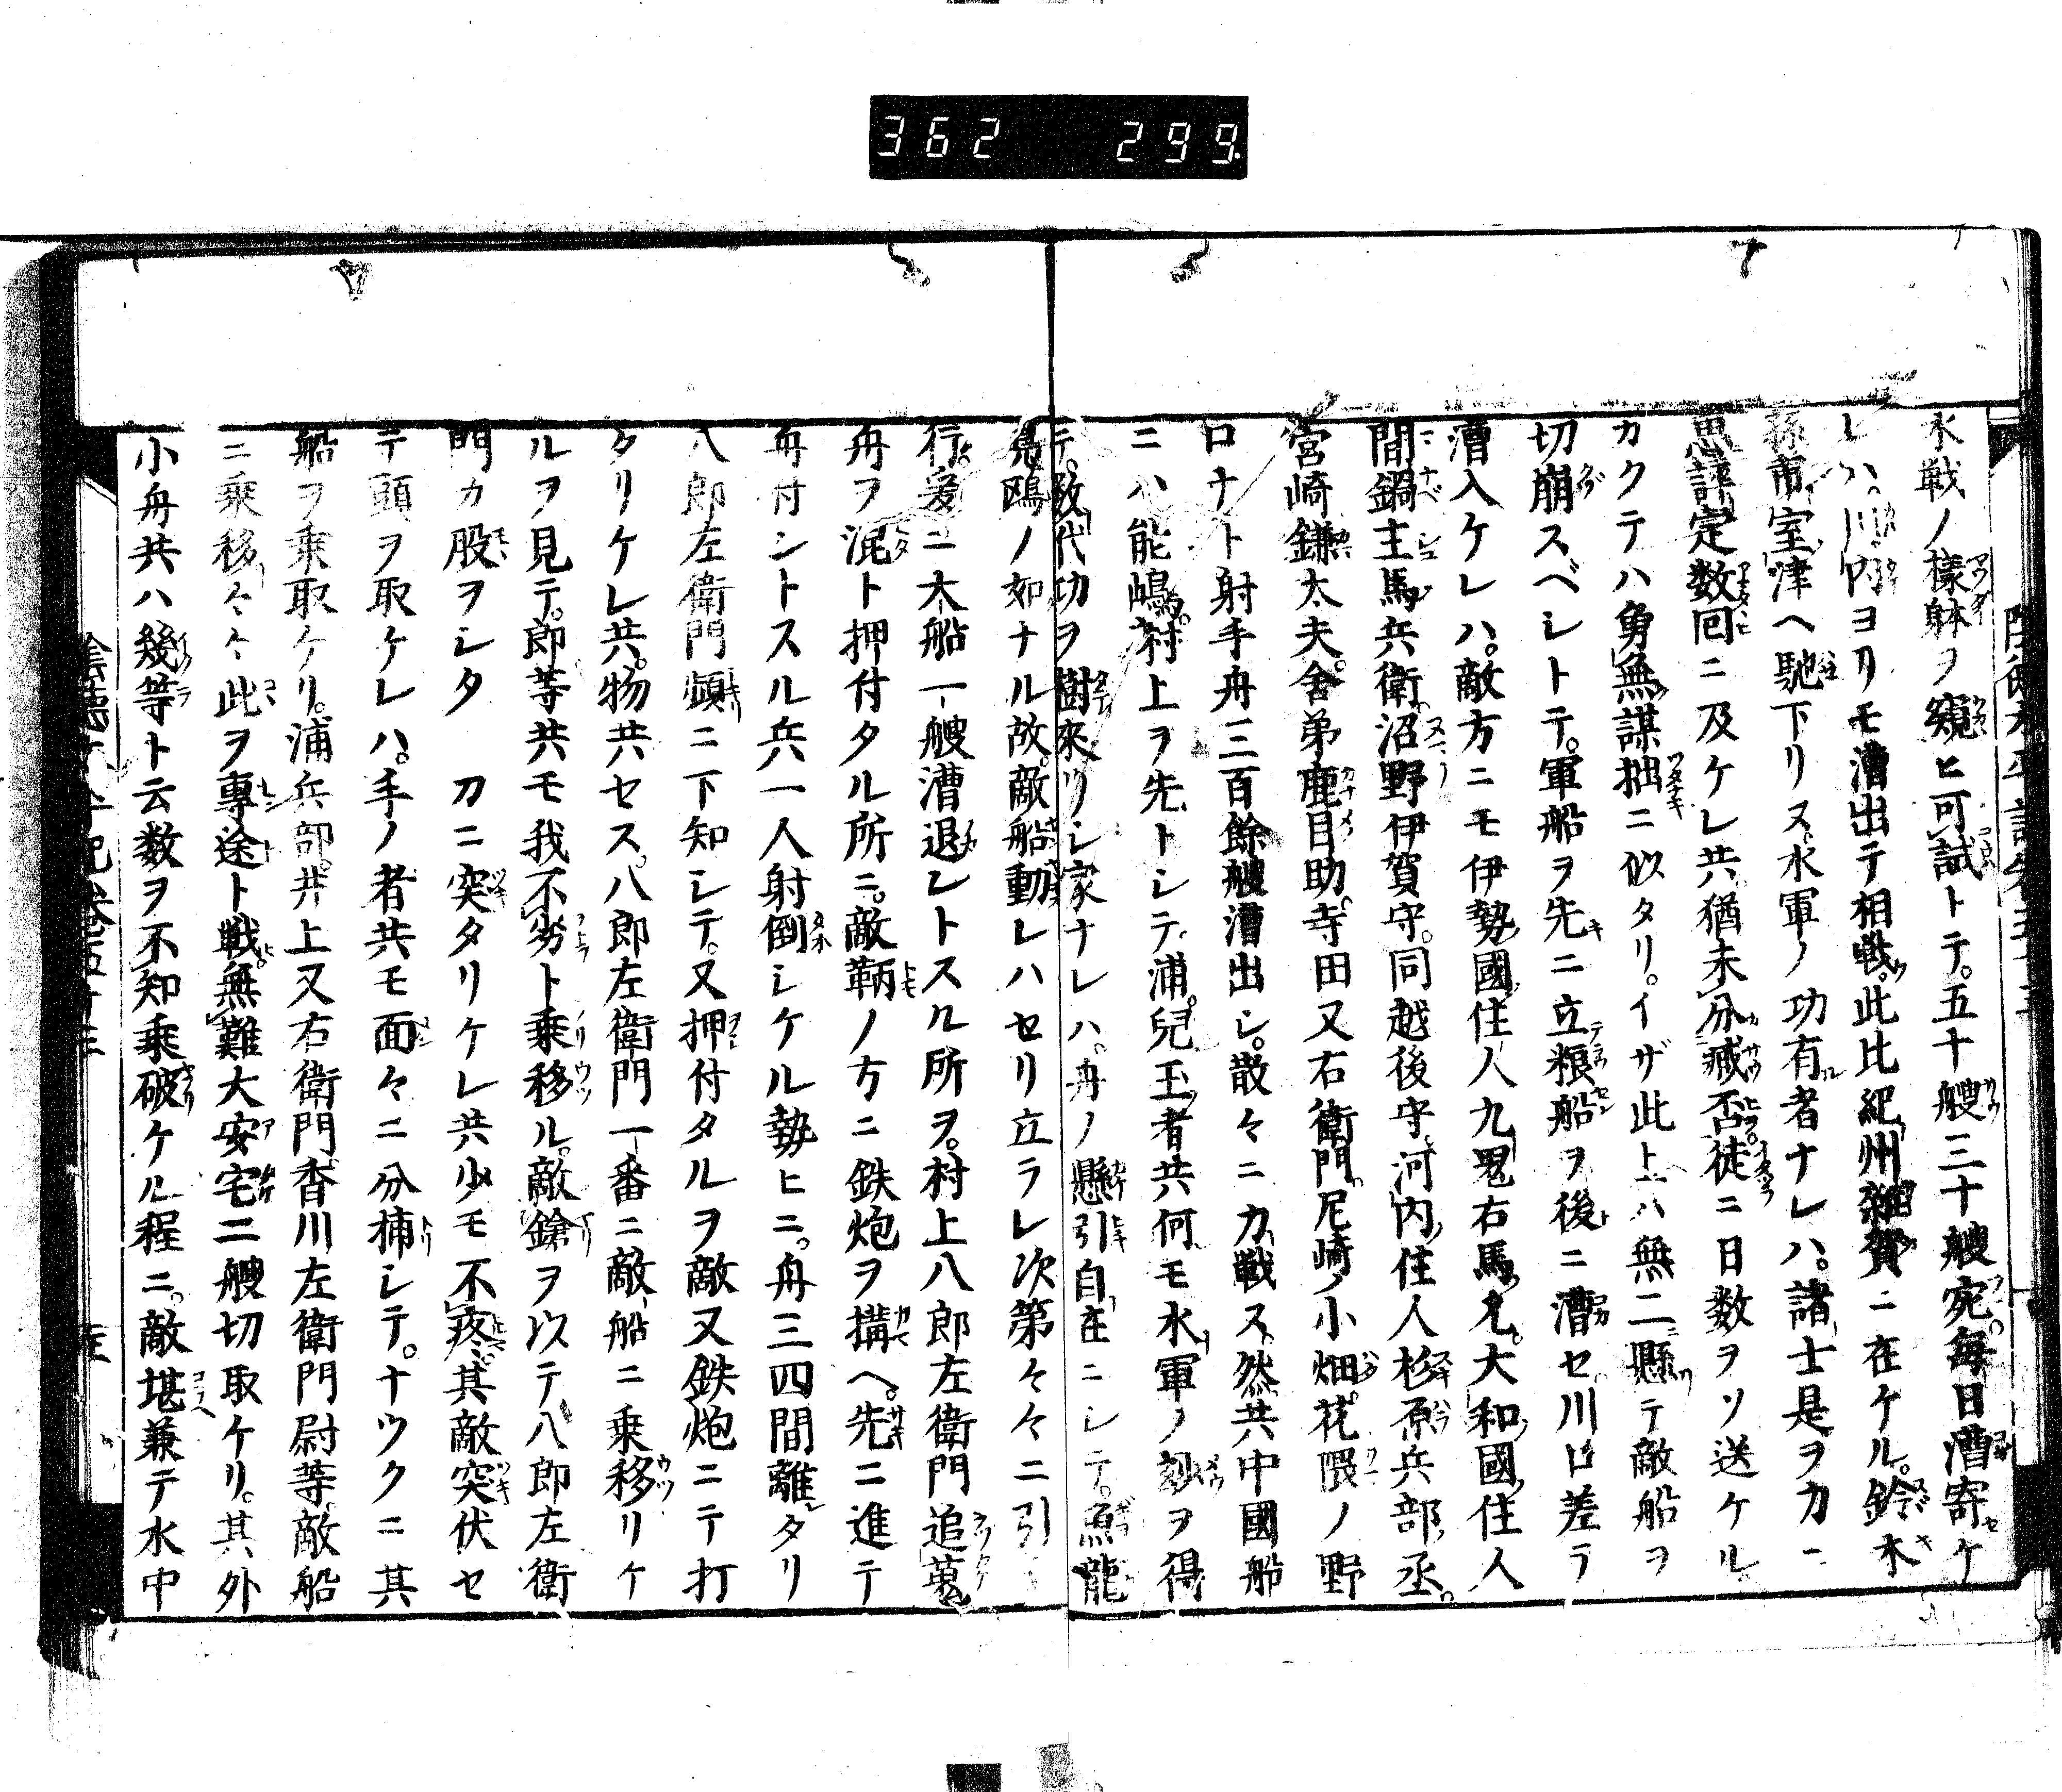 362 299
水戦ノ様躰ヲ窺ヒ可試トテ。五十艘三十艘宛。毎日漕寄ケ
レハ。川内ヨリモ漕出テ相戦。此比紀州雑賀ニ在ケル。鈴木
孫市室津ヘ馳下リヌ。水軍ノ功有者ナレハ。諸士是ヲカニ
思評定数回ニ及ケレ共猶未分臧否。徒ニ日数ヲソ送ケル
カクテハ勇無謀拙ニ似タリ。イザ此上ハ無二懸テ敵船ヲ
切崩スベシトテ。軍船ヲ先ニ立粮船ヲ後ニ漕セ川口差テ
漕入ケレハ。敵方ニモ伊勢國住人九鬼右馬允。大和國住人
間鍋主馬兵衛。沼野伊賀守。同越後守。河内住人杉原兵部丞。
宮崎鎌太夫。舎弟鹿目助。寺田又右衛門。尼崎ノ小畑。花隈ノ野
口ナト射手舟三百餘艘漕出シ。散々ニ力戦ス。然共中國船
ニハ能嶋。村上ヲ先トシテ。浦。兒玉者共何モ水軍ノ妙ヲ得
テ。数代功ヲ樹來リシ家ナレハ。舟ノ懸引自在ニシテ。魚龍
鳬鴎ノ如ナル故。敵船動レハセリ立ラレ次第々々ニ引
行。爰ニ大船一艘漕退レトスル所ヲ。村上八郎左衛門追蒐
舟ヲ混ト押付タル所ニ。敵鞆ノ方ニ鉄炮ヲ搆ヘ。先ニ進テ
舟付ントスル兵一人射倒シケル勢ヒニ。舟三四間離タリ
八郎左衛門頻ニ下知シテ。又押付タルヲ敵又鉄炮ニテ打
タリケレ共。物共セス。八郎左衛門一番ニ敵船ニ乗移リケ
ルヲ見テ。郎等共モ我不劣ト乗移ル。敵鎗ヲ以テ八郎左衛
門カ股ヲシタヽカニ突タリケレ共少モ不疼。其敵突伏セ
テ頭ヲ取ケレハ。手ノ者共モ面々ニ分捕シテ。ナツクニ其
船ヲ乗取ケリ。浦兵部。井上又右衛門。香川左衛門尉等。敵船
ニ乗移々々此ヲ專途ト戦。無難大安宅二艘切取ケリ。其外
小舟共ハ幾等ト云数ヲ不知乗破ケル程ニ。敵堪兼テ水中